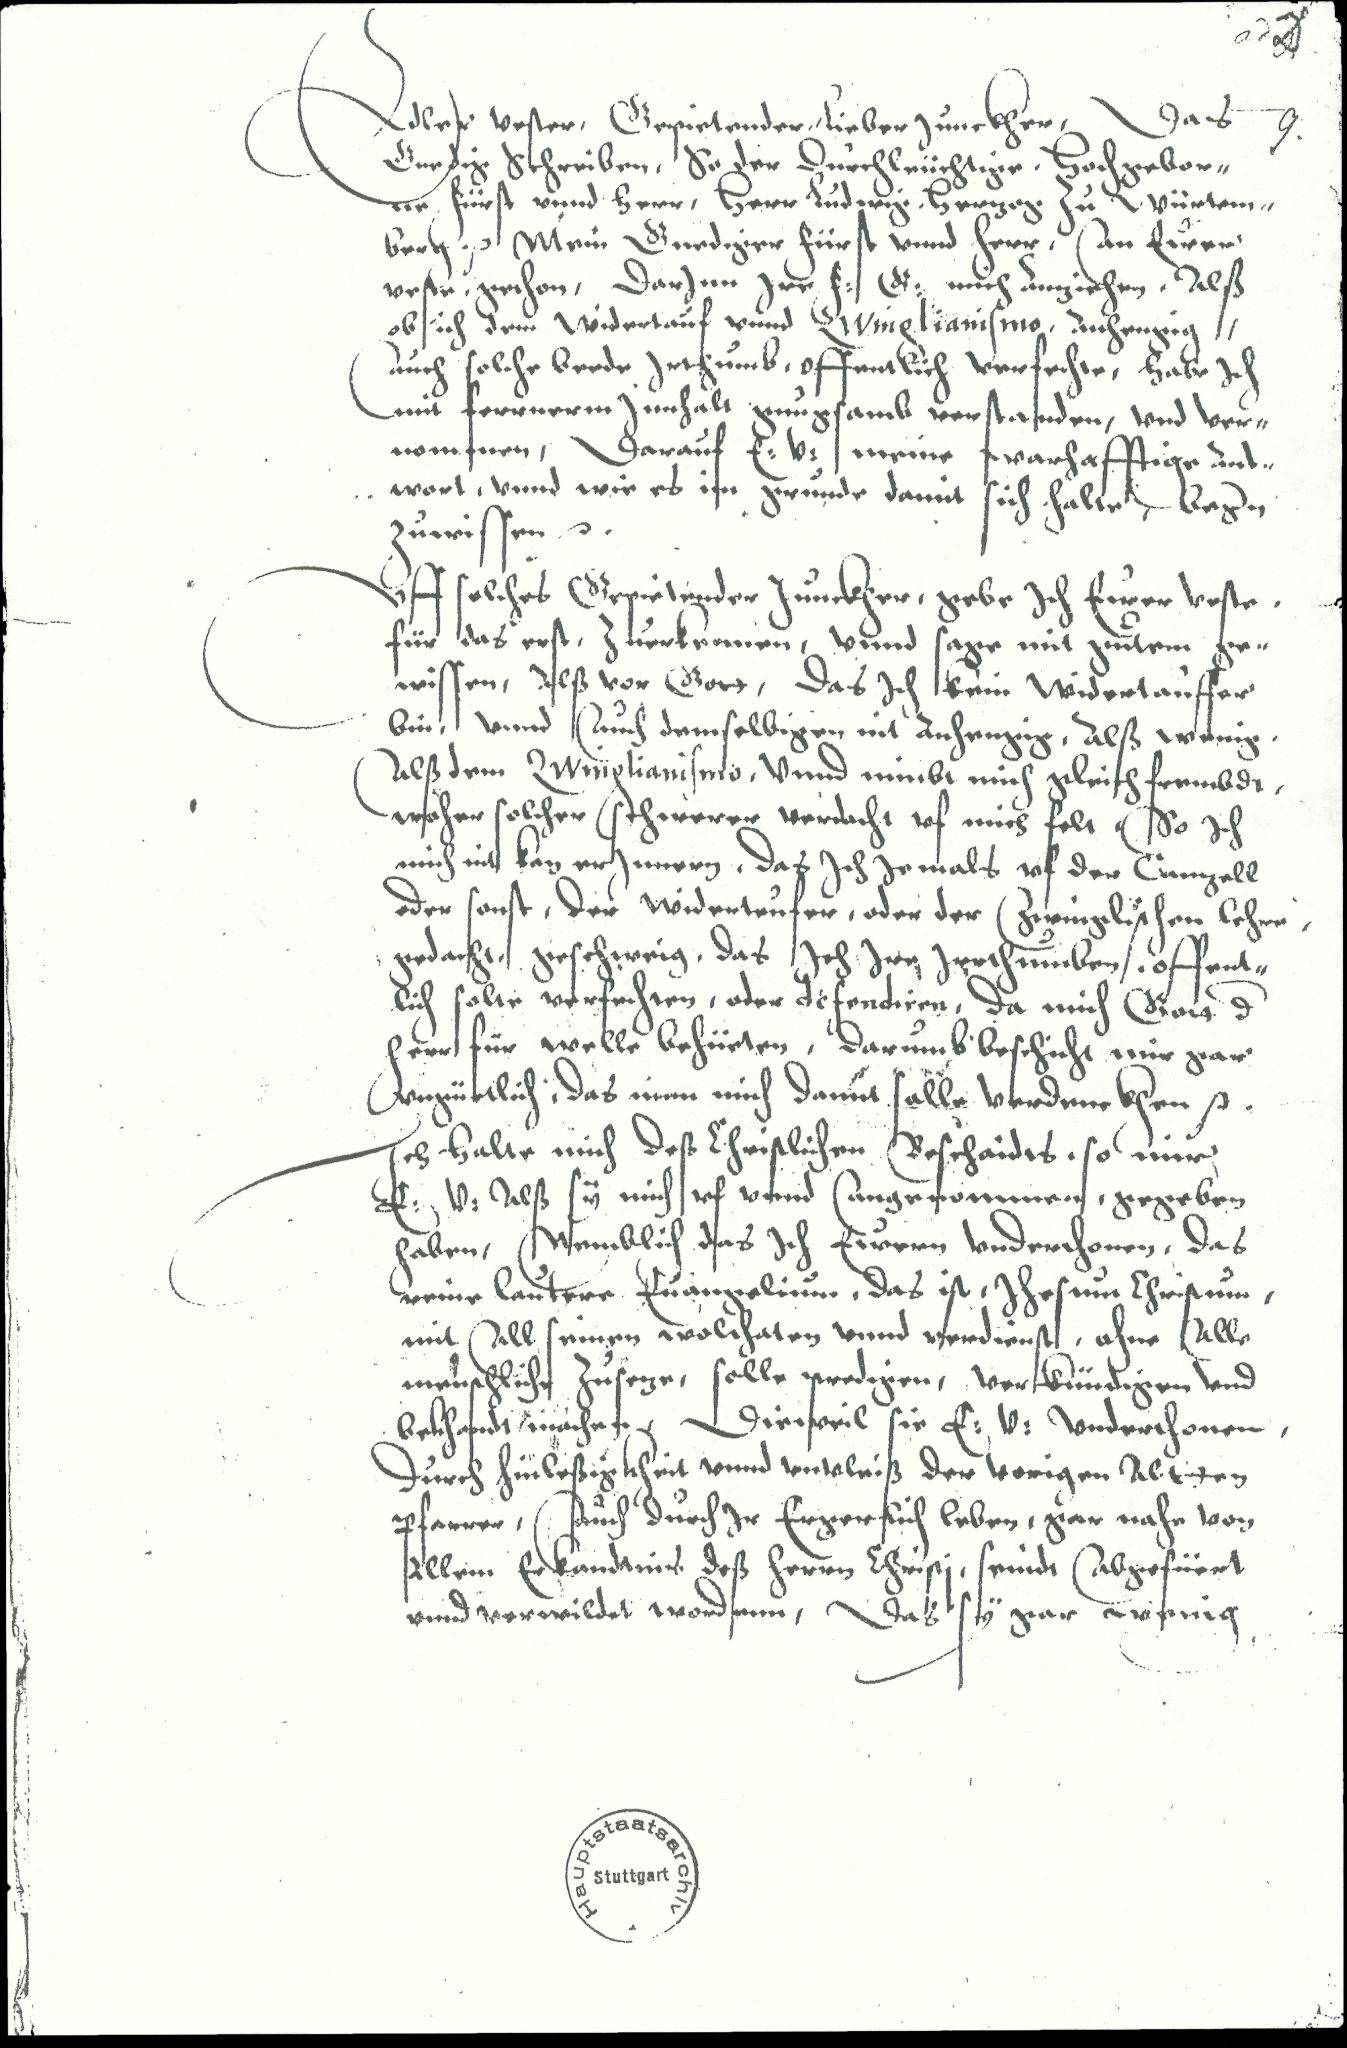 9.
Edler vester, Gepietender, Lieber Junckher, Das
Gnedig Schreiben, So der Durchleüchtige, Hochgebor-
ne fürst vnnd Herr, Herr Ludwig, Hertzog Zu Würtem-
berg ꝛc Mein Gnediger fürst vnnd Herr, An Euwer
veste, gethon, Darjnn Jre f: G: mich Anziehen, Alß
ob ich dem Widertauf vnnd Zwinglianismo, Anhengig,
Auch solche beede Jrthumb, offentlich verfechte, habe Jch
mit fernnerm Jnnhalt gnugsamb verstanden, vnd ver-
nommen, Darauf E: V: meine warhafftige Ant-
wort, vnnd wie es im grunde damit sich halte, begern
Zuwissen ꝛc.
Vff solches Gepietender Junckher, gebe Jch Euwer veste,
für das erst, Zuerkennen, vnnd sage mit gutem ge-
wissen, Alß vor Gott, Das Jch kein Widertauffer
bin, vnnd Auch demselbigen nit Anhengig, Alß wenig,
Alß dem Zwinglianismo, Vnnd nimbt mich gleich frembdt,
woher solcher schwerer verdacht vf mich felt, So Jch
mich nit kan erJnnern, das Jch Jemals vf der Cantzell
oder sonst, der Widerteufer, oder der Zwinglischen lehre,
gedacht, geschweig, das Jch Jre Jrrthumben, offent-
lich solte verfechten, oder defendiren, da mich Gott d
Herr für welle behüeten, darumb beschicht mir gar
vngüetlich, das man mich damit solle verdenckhen ꝛc.
Jch halte mich deß Christlichen Beschaidts, so mir
E: V: Alß sy mich vf vnnd Angenommen, gegeben
haben, Nemblich das Jch Euwern vnderthonen, das
reine lautere Euangelium, das ist, Jhesum Christum,
mit All seinen wolthaten vnnd verdienst, ohne Alle
menschliche Zusetze, solle predigen, verkündigen vnd
bekhandt machen, Dieweil sie E: V: vnderthonen,
durch hinleßigkheit vnnd vnvleiß der vorigen Altten
Pfarrer, Auch durch Jr Ergerlich leben, gar nahe von
Allem Erkandtnus deß Herrn Christj, seindt Abgefüert
vnnd verwildet wordenn, Das sy gar wenig
Hauptstaatsarchiv
Stuttgart